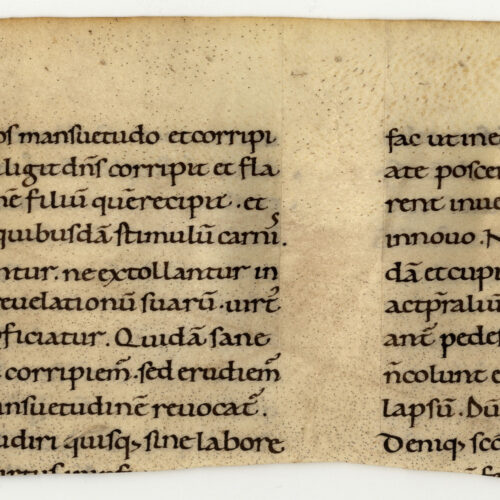 os mansuetudo et corripi
ligit dn̄s corripit et fla
nē filiū quē recipit · et
quibusdā stimulū carnis.
ntur. ne extollantur in
reuelationū suarū · uirt᷒
ficiatur. Quidā sane
corripiem̄ · sed erudiem̄
nsuetudinē reuocat̄.
udiri quisq; sine labore
fac ut ine
ate poscen
rent inue
innouo. N
dā et cupi
act p̄ralū
ant̄ pedes
n̄ colunt e
lapsū. Dū
Deniq; sco